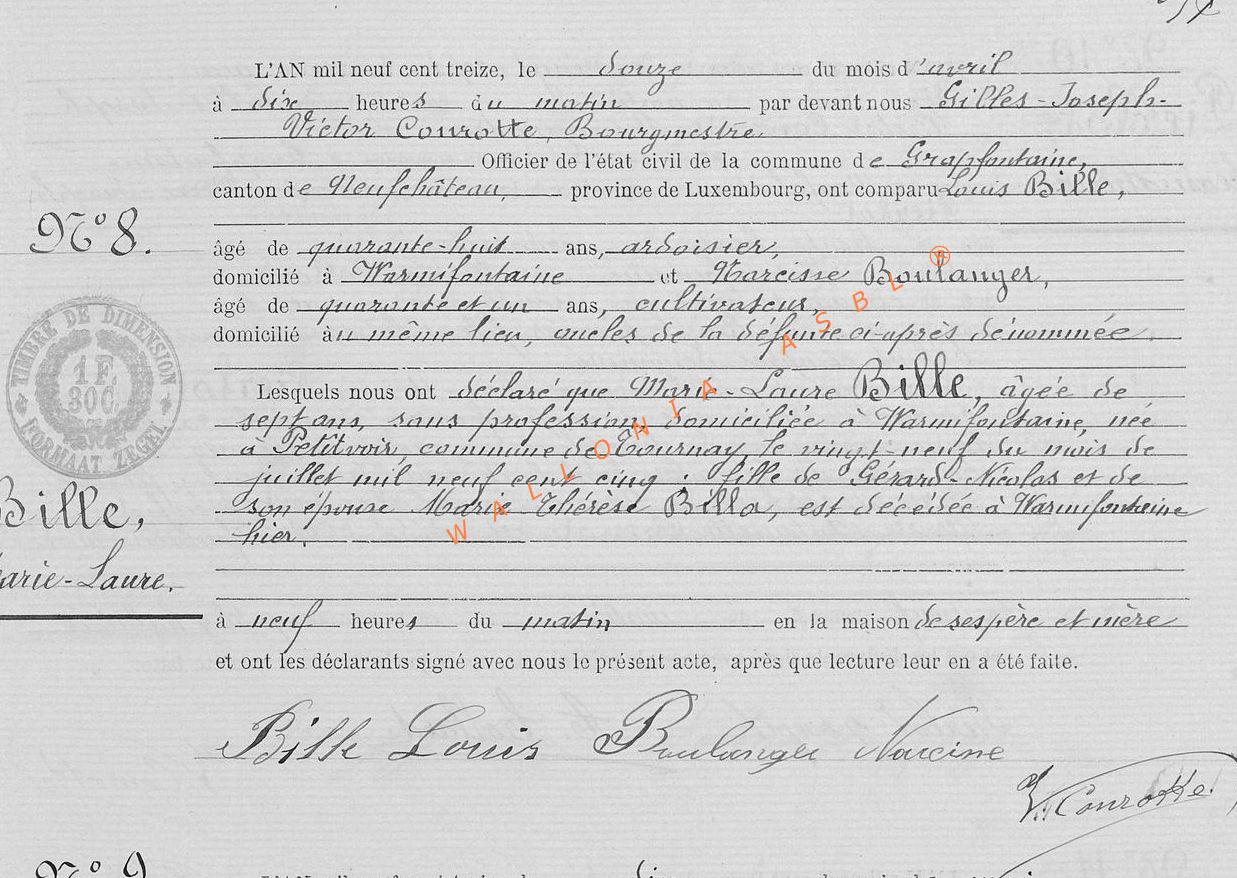 L'AN mil neuf cent treize, le douze du mois d'avril
à dix heures du matin par devant nous Gilles-Joseph-
Victor Courotte, Bourgmestre
Officier de l'état civil de la commune de Grapfontaine,
canton de Neufchâteau, province de Luxembourg, ont comparu Louis Bille,
N° 8.
âgé de quarante-huit ans, ardoisier,
domicilié à Warmifontaine et Narcisse Boulanger,
âgé de quarante et un ans, cultivateur,
domicilié au même lieu, oncles de la défunte ci-après dénommée.
TIMBRE DE DIMENSION
1 F.
30 C.
FORMAAT ZEGEL
Lesquels nous ont déclaré que Marie-Laure Bille, âgée de
sept ans, sans profession, domiciliée à Warmifontaine, née
à Petitvoir, commune de Tournay, le vingt-neuf du mois de
juillet mil neuf cent cinq ; fille de Gérard-Nicolas et de
son épouse Marie Thérèse Billa, est décédée à Warmifontaine
hier.
Bille,
arie-Laure.
à neuf heures du matin en la maison de ses père et mère
et ont les déclarants signé avec nous le présent acte, après que lecture leur en a été faite.
Bille Louis Boulanger Narcisse
V. Courotte
N° 9
WALLONIA ASBL ®